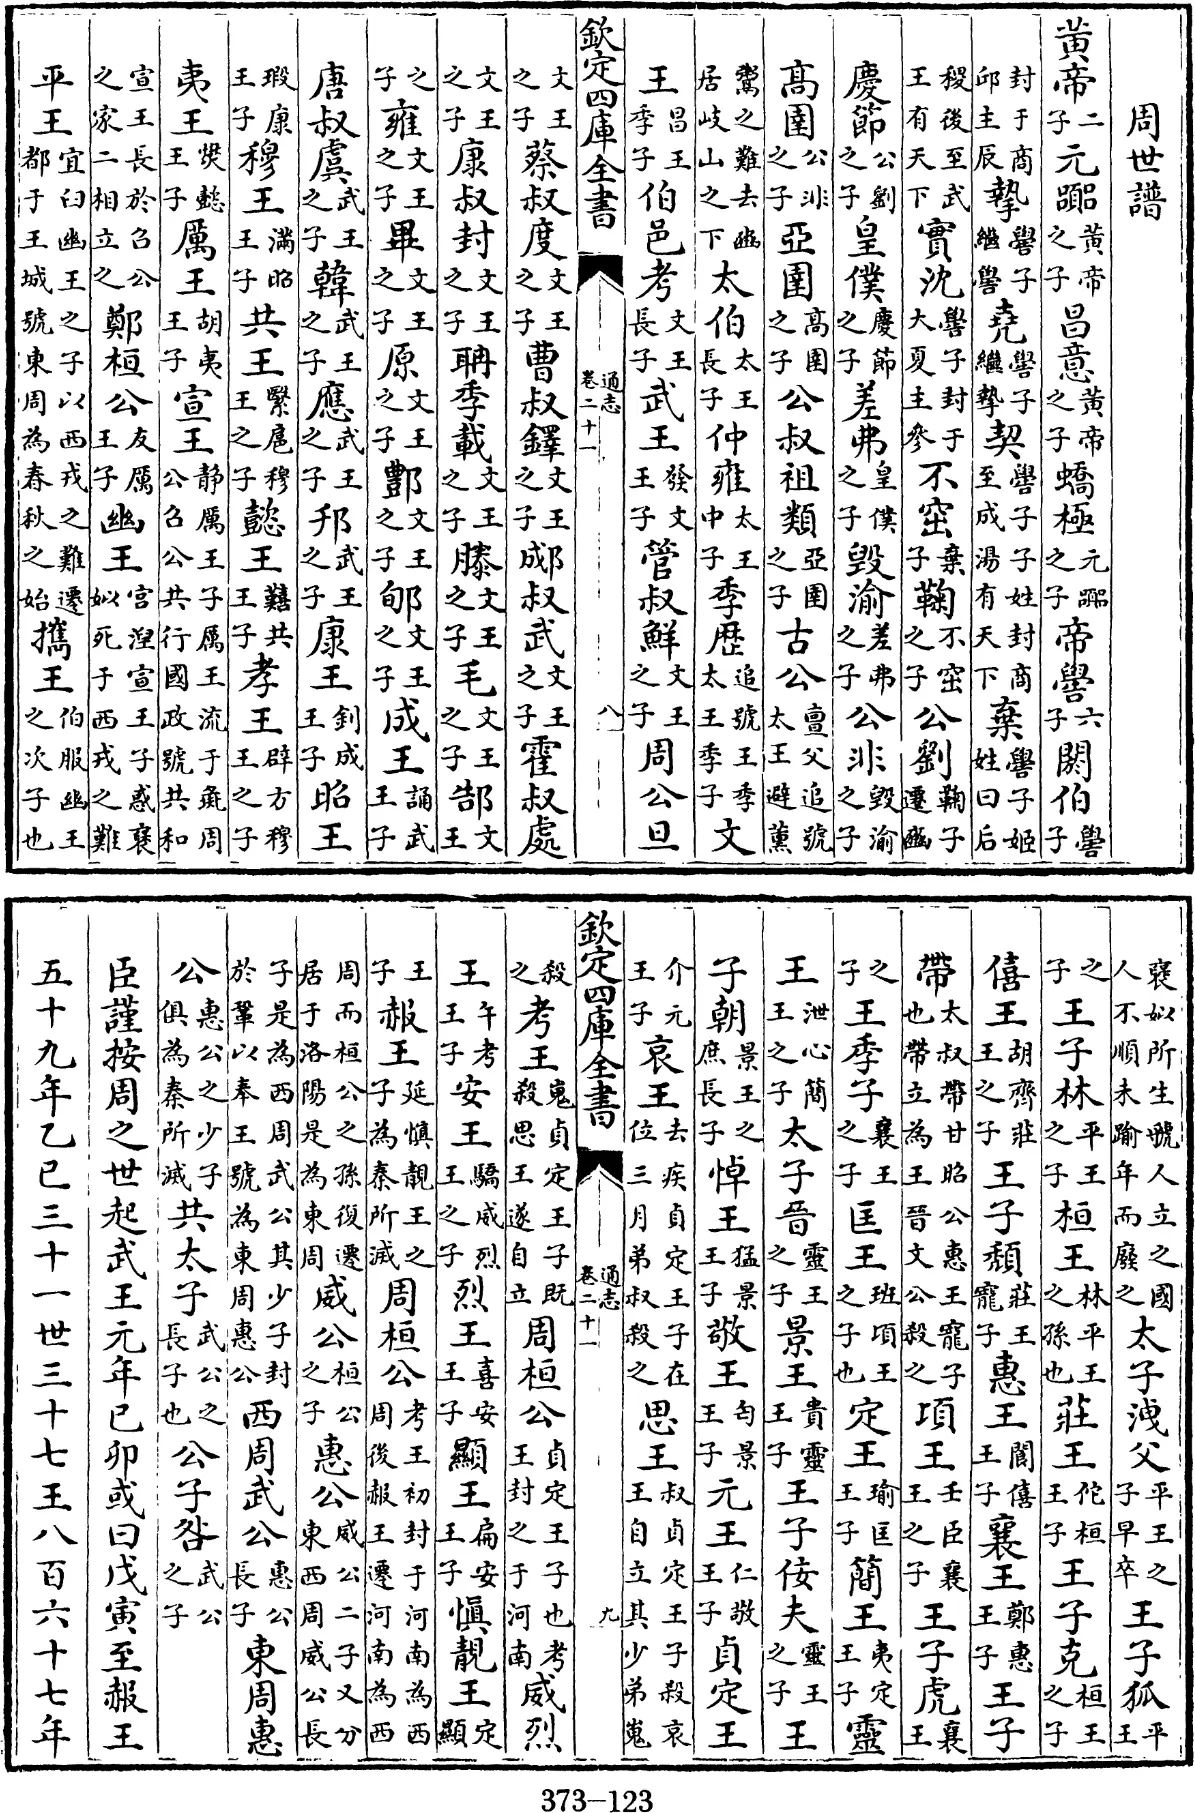 周世譜
黄帝二子元嚻黄帝之子昌意黄帝之子蟜極元嚻之子帝嚳六子閼伯嚳子
封于商邱主辰摯嚳子繼嚳堯嚳子繼摯契嚳子子姓封商至成湯有天下棄嚳子姬姓曰后
稷後至武王有天下實沈嚳子封于大夏主參不窋棄子鞠不窋之子公劉鞠子遷豳
慶節公劉之子皇僕慶節之子差弗皇僕之子毀渝差弗之子公非毀渝之子
高圉公非之子亞圉高圉之子公叔祖類亞圉之子古公亶父追號太王避薰
鬻之難去豳居岐山之下太伯太王長子仲雍太王中子季歴追號王季太王季子文
王昌王季子伯邑考文王長子武王發文王子管叔鮮文王之子周公旦
欽定四庫全書 通志卷二十一 八
文王之子蔡叔度文王之子曹叔鐸文王之子郕叔武文王之子霍叔處
文王之子康叔封文王之子聃季載文王之子滕文王之子毛文王之子郜文王
之子雍文王之子畢文王之子原文王之子酆文王之子郇文王之子成王誦武王子
唐叔虞武王之子韓武王之子應武王之子邘武王之子康王釗成王子昭王
瑕康王子穆王滿昭王子共王繄扈穆王之子懿王囏共王子孝王辟方穆王之子
夷王燮懿王子厲王胡夷王子宣王静厲王子厲王流于彘周公召公共行國政號共和
宣王長於召公之家二相立之鄭桓公友厲王子幽王宫湼宣王子惑襃姒死于西戎之難
平王宜臼幽王之子以西戎之難遷都于王城號東周為春秋之始攜王伯服幽王之次子也
襃姒所生虢人立之國人不順未踰年而廢之太子洩父平王之子早卒王子狐平王
之子王子林平王之子桓王林平王之孫也莊王佗桓王子王子克桓王之子
僖王胡齊莊王之子王子頽莊王寵子惠王閬僖王子襄王鄭惠王子王子
帶太叔帶甘昭公惠王寵子也帶立為王晉文公殺之項王壬臣襄王之子王子虎襄王
之子王季子襄王之子匡王班項王之子也定王瑜匡王子簡王夷定王子靈
王泄心簡王之子太子晉靈王之子景王貴靈王子王子佞夫靈王之子王
子朝景王之庶長子悼王猛景王子敬王匄景王子元王仁敬王子貞定王
介元王子哀王去疾貞定王子在位三月弟叔殺之思王叔貞定王子殺哀王自立其少弟嵬
欽定四庫全書 通志卷二十一 九
殺之考王嵬貞定王子既殺思王遂自立周桓公貞定王子也考王封之于河南威烈
王午考王子安王驕威烈王之子烈王喜安王子顯王扁安王子慎靚王定顯
王子赧王延慎靚王之子為秦所滅周桓公考王初封于河南為西周後赧王遷河南為西
周而桓公之孫復遷居于洛陽是為東周威公桓公之子惠公威公二子又分東西周威公長
子是為西周武公其少子封於鞏以奉王號為東周惠公西周武公惠公長子東周惠
公惠公之少子俱為秦所滅共太子武公之長子也公子咎武公之子
臣謹按周之世起武王元年己卯或曰戊寅至赧王
五十九年乙巳三十一世三十七王八百六十七年
373-123